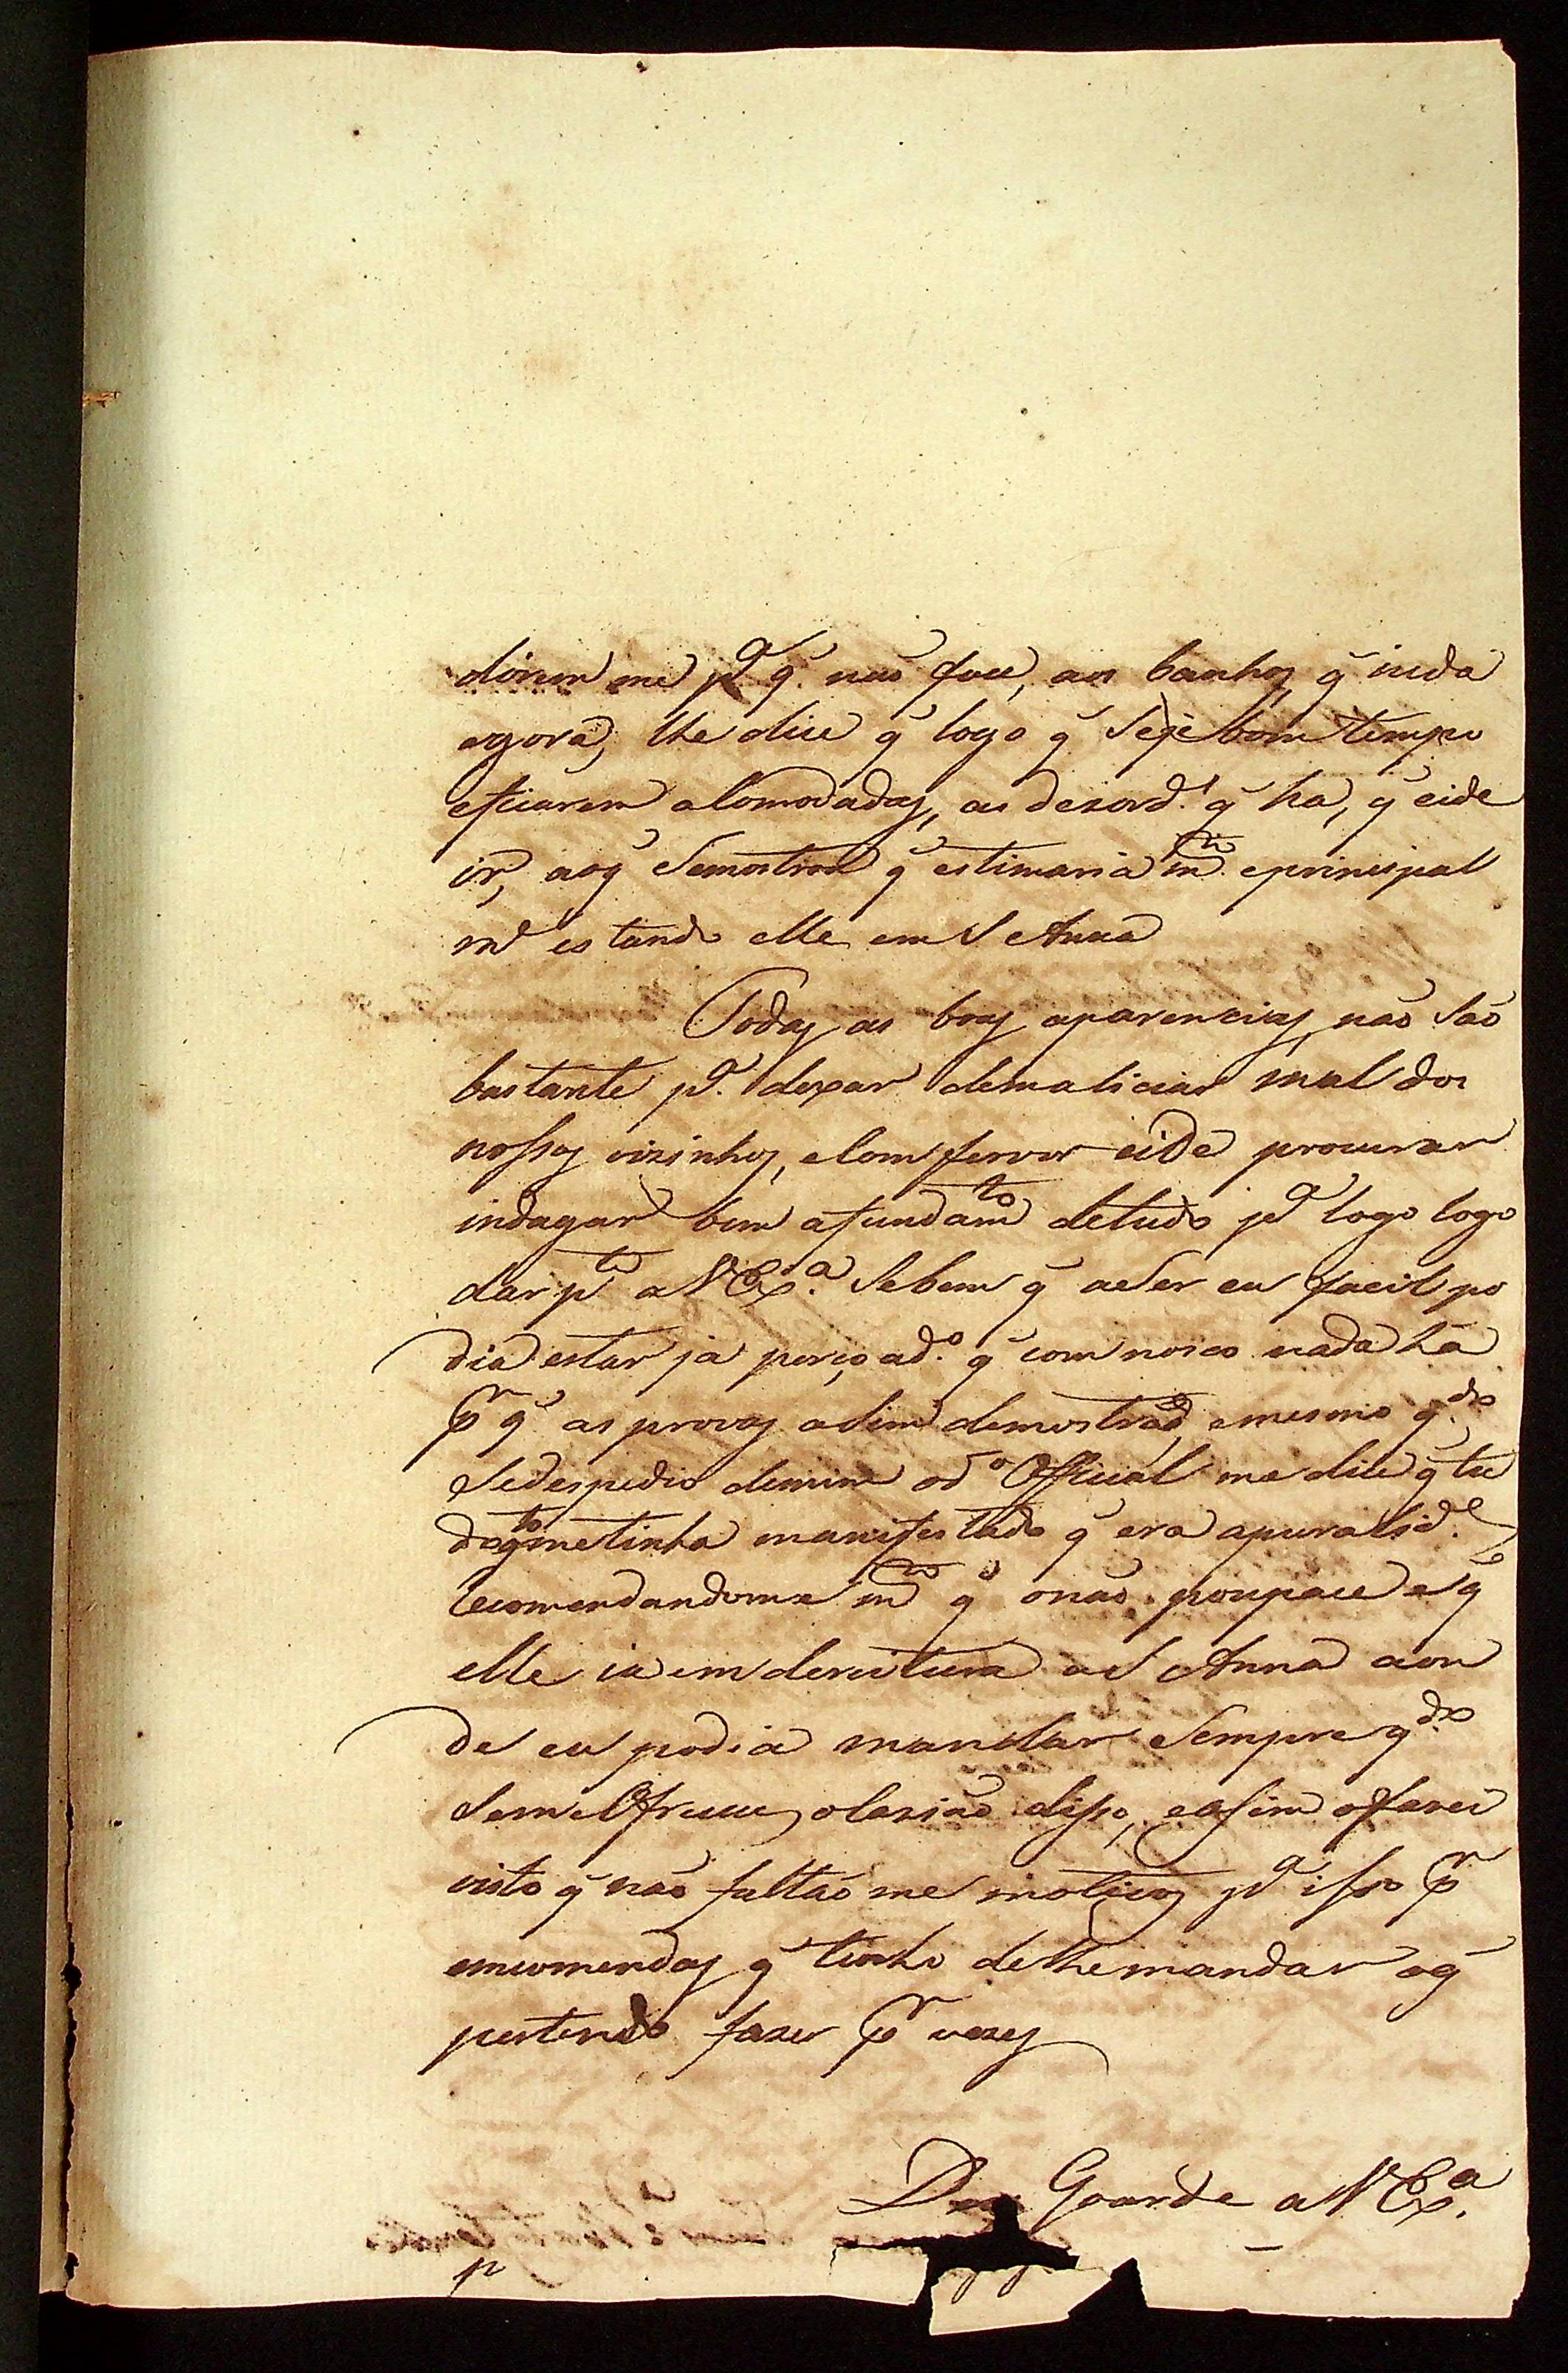 me pª q̃ não foce, aos banhos q̃ inda
agora, lhe dice q̃ logo q̃ Seje bom tempo
esticarem acomodadas, as dezord.s q̃ ha, q̃ eide
ir, aoq̃ Semostrou q̃ estimaria mto eprincipal
me estando elle em S Anna
Todas as boas aparencias não são
bastante pª. dexar demaliciar mal dos
nossos vizinhos, eCom fervor eide procurar
indagar bem afundamto detudo pª logo logo
dar pte a V Exª. Sebem q̃ aSer eu facil po
dia estar já q̃ com nosco nada há
pr q̃ as provas asim demostrão, emesmo qdo
Sedespedio demim od.º Official me dice q̃ tu
do qto metinha manifestado q̃ era apuralid.e
recomendandome mto q̃ onão poupace e q̃
elle ia em dereitura a S Anna aon
de eu podia mandar Sempre qdo
Seme Ofrecece ocazião disso, easim ofarei
visto q̃ não faltão me motivos pª isso pr
emcomendas q̃ tenho delhemandar oq̃
pertendo fazer pr vezes
Goarde a V Exª.